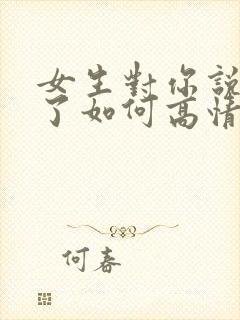 女生對你說
了如何高情
何春